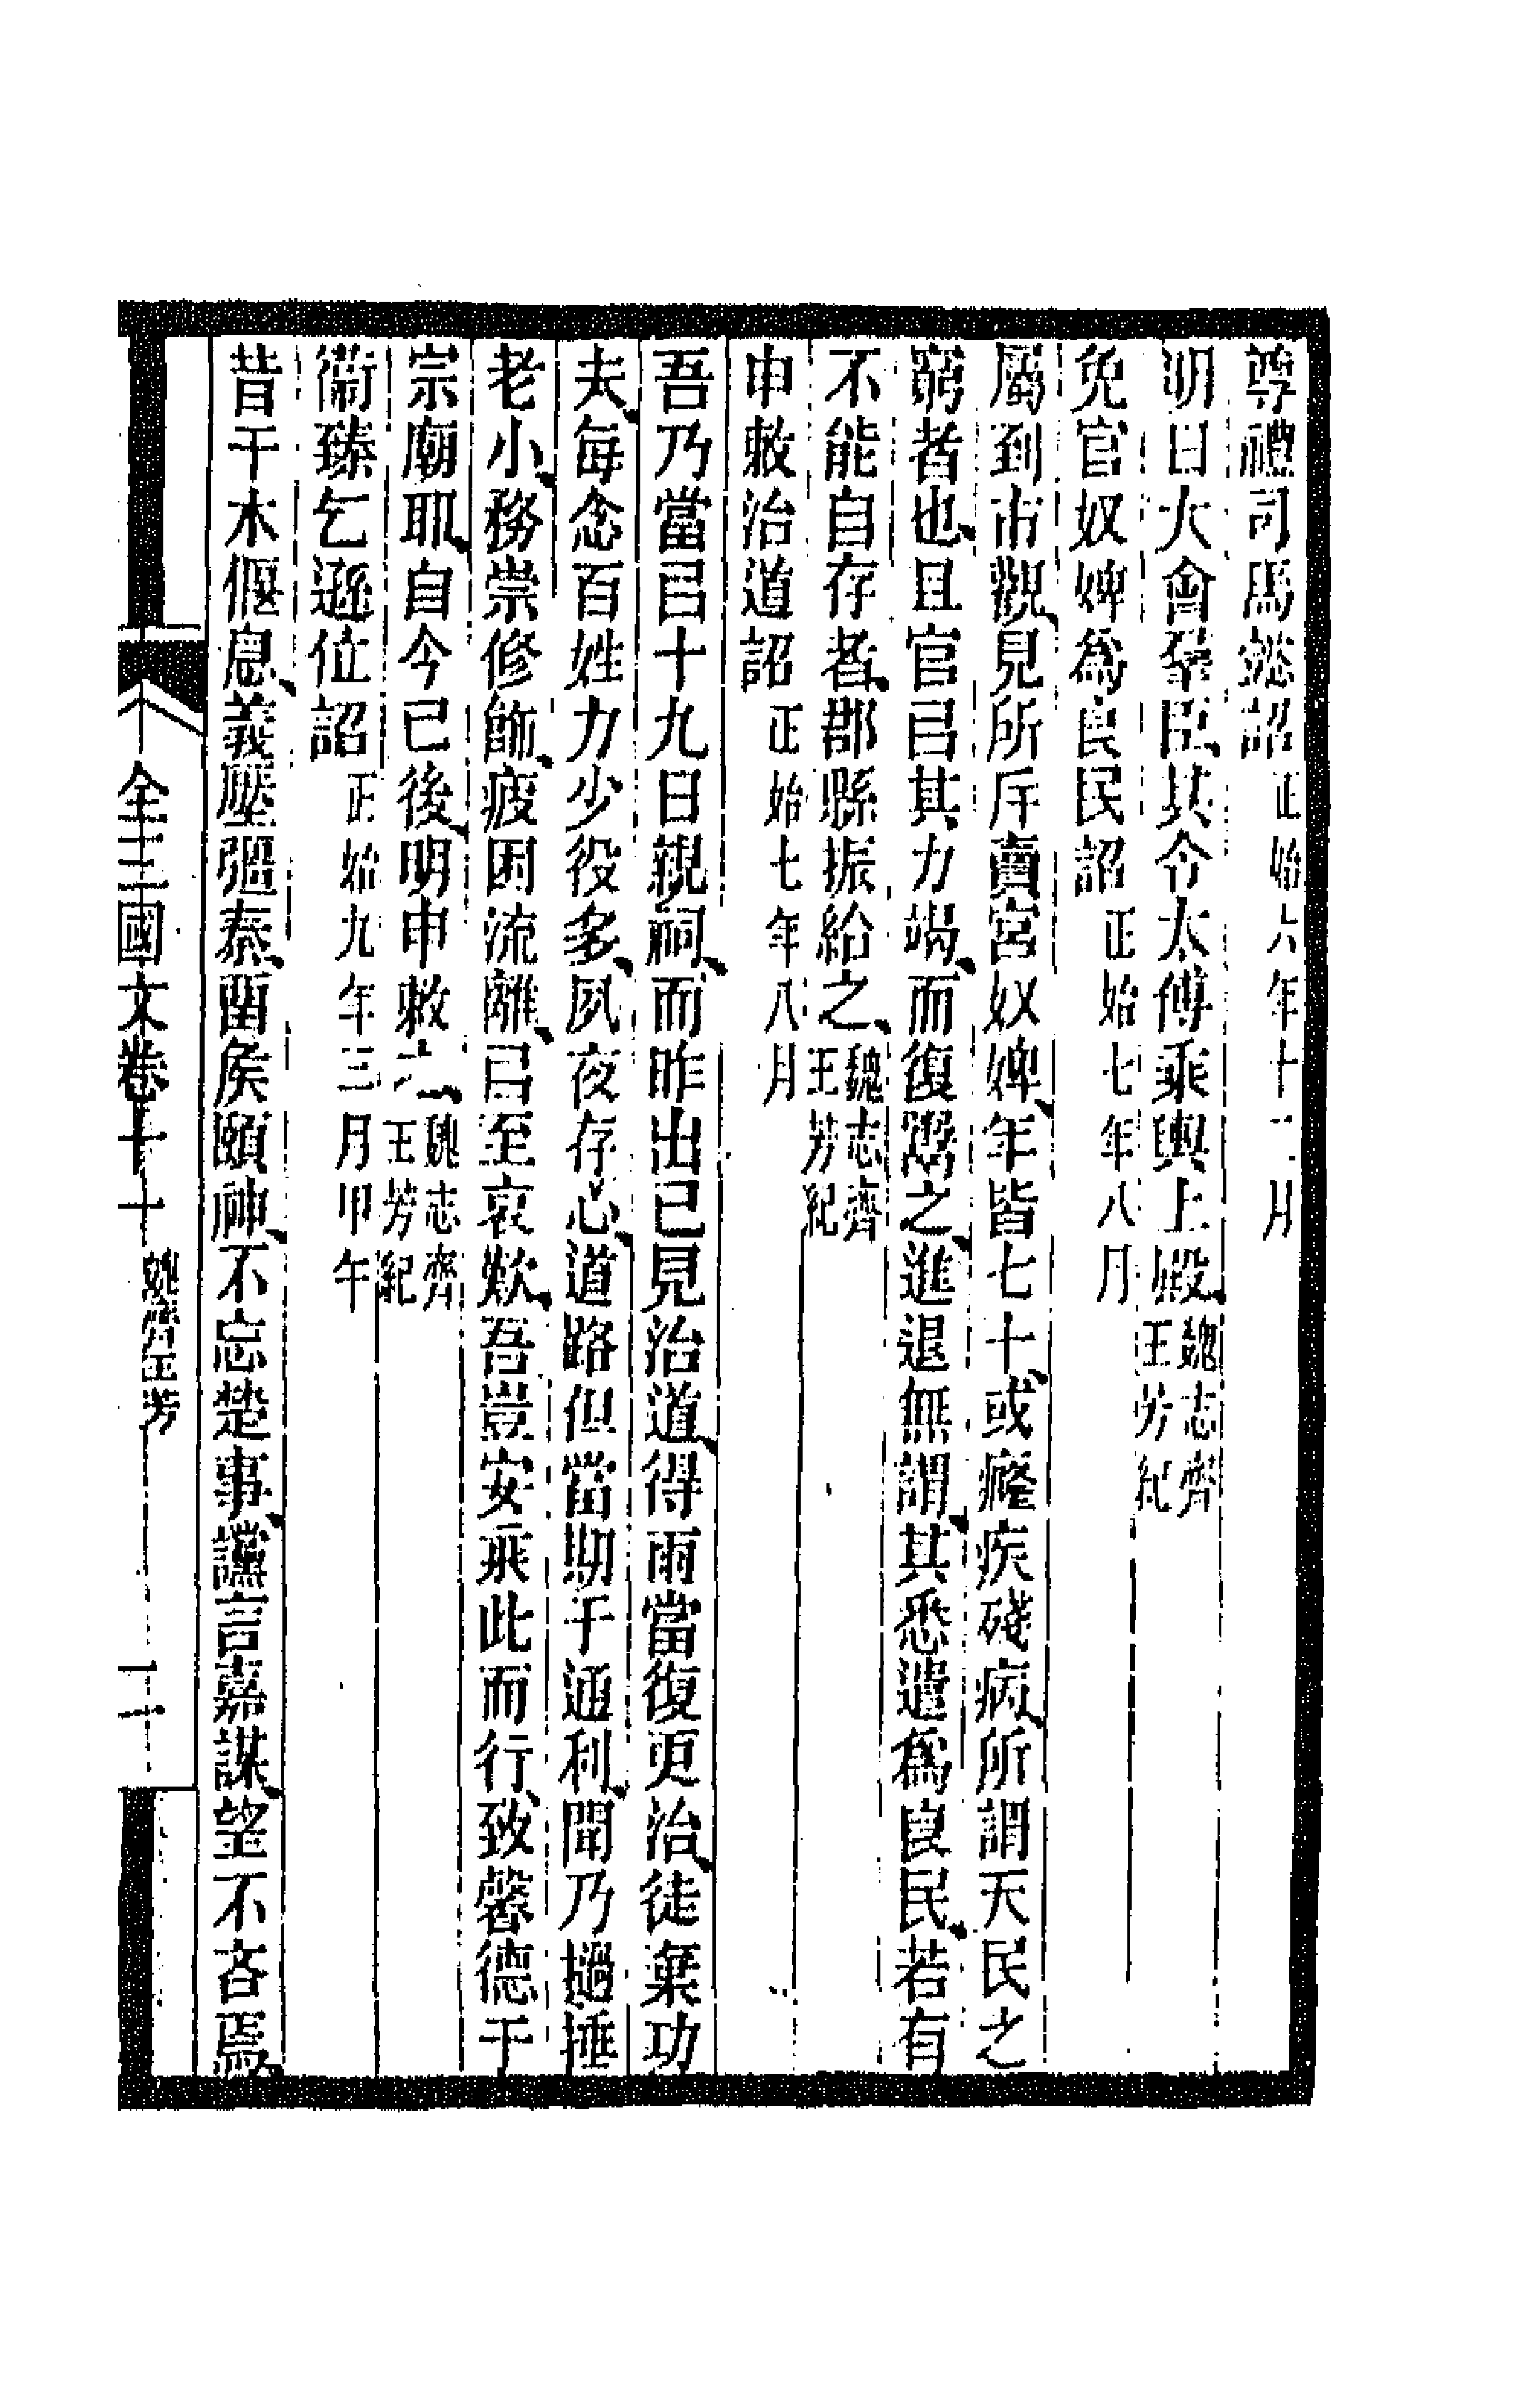 尊禮司馬懿詔正始六年十一月
明日大會羣臣其令太傅乘輿上殿魏志齊王芳紀
免官奴婢爲良民詔正始七年八月
屬到市觀見所斥賣官奴婢年皆七十或癃疾殘病所謂天民之
窮者也且官㠯其力竭而復鬻之進退無謂其悉遣爲良民若有
不能自存者郡縣振給之魏志齊王芳紀
申敕治道詔正始七年八月
吾乃當㠯十九日親祠而昨出已見治道得雨當復更治徒棄功
夫每念百姓力少役多夙夜存心道路但當期于通利聞乃撾捶
老小務崇修飾疲困流離㠯至哀歎吾豈安乘此而行致馨德于
宗廟耶自今已後明申敕之魏志齊王芳紀
衞臻乞遜位詔正始九年三月甲午
昔干木偃息義壓彊秦畱矦頤神不忘楚事讜言嘉謀望不吝焉
全三國文卷十 魏齊王芳 二